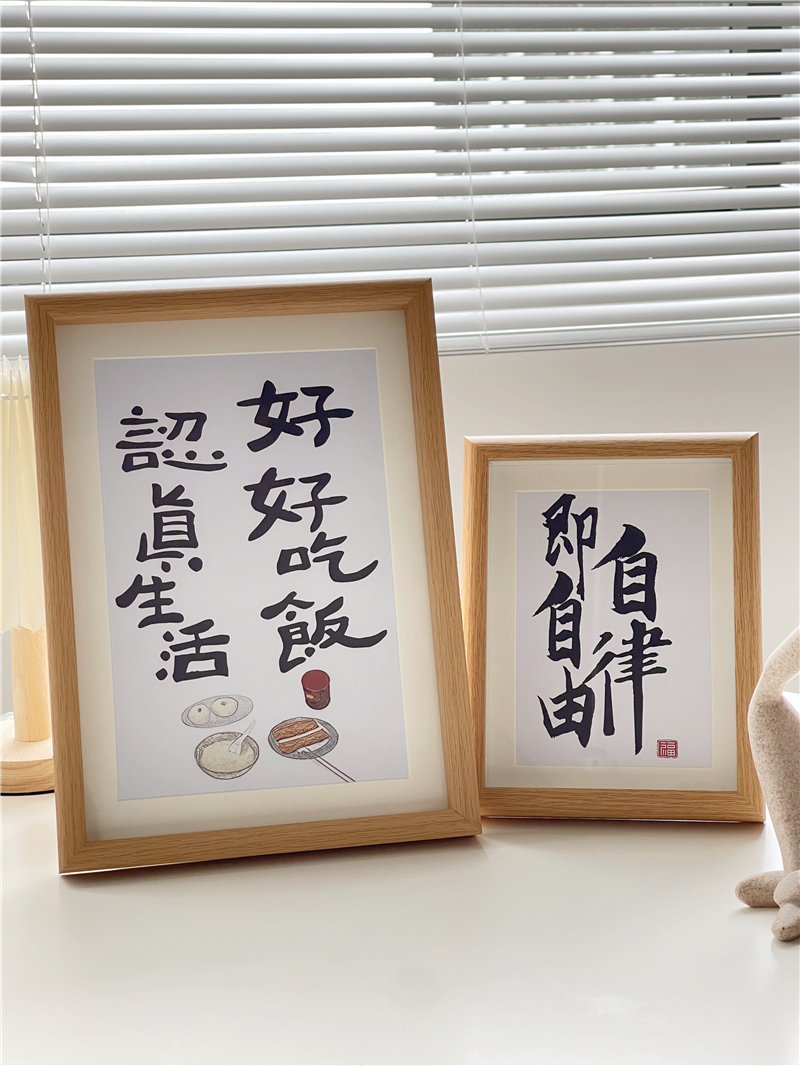 好好吃飯
認眞生活
自律
即自由
福